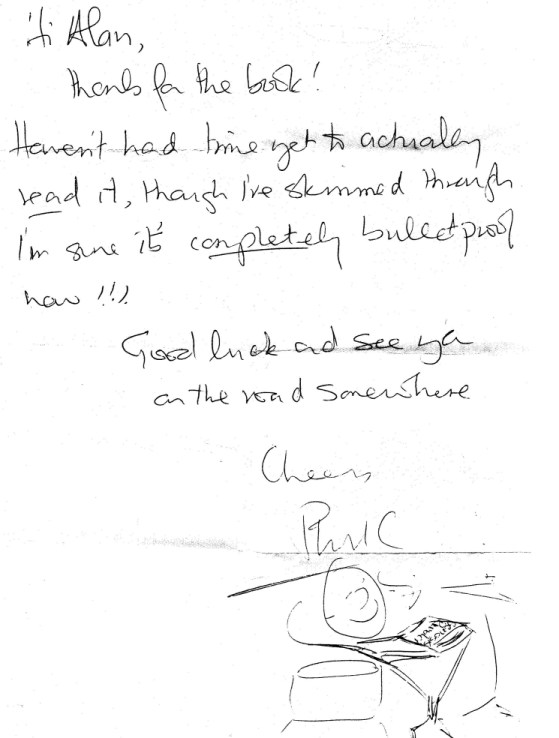 Hi Alan,
thanks for the book!
Haven't had time yet to actually
read it, though I've skimmed through
I'm sure it's completely bulletproof
now !!!
Good luck and see ya
on the road somewhere
Cheers
Phil C